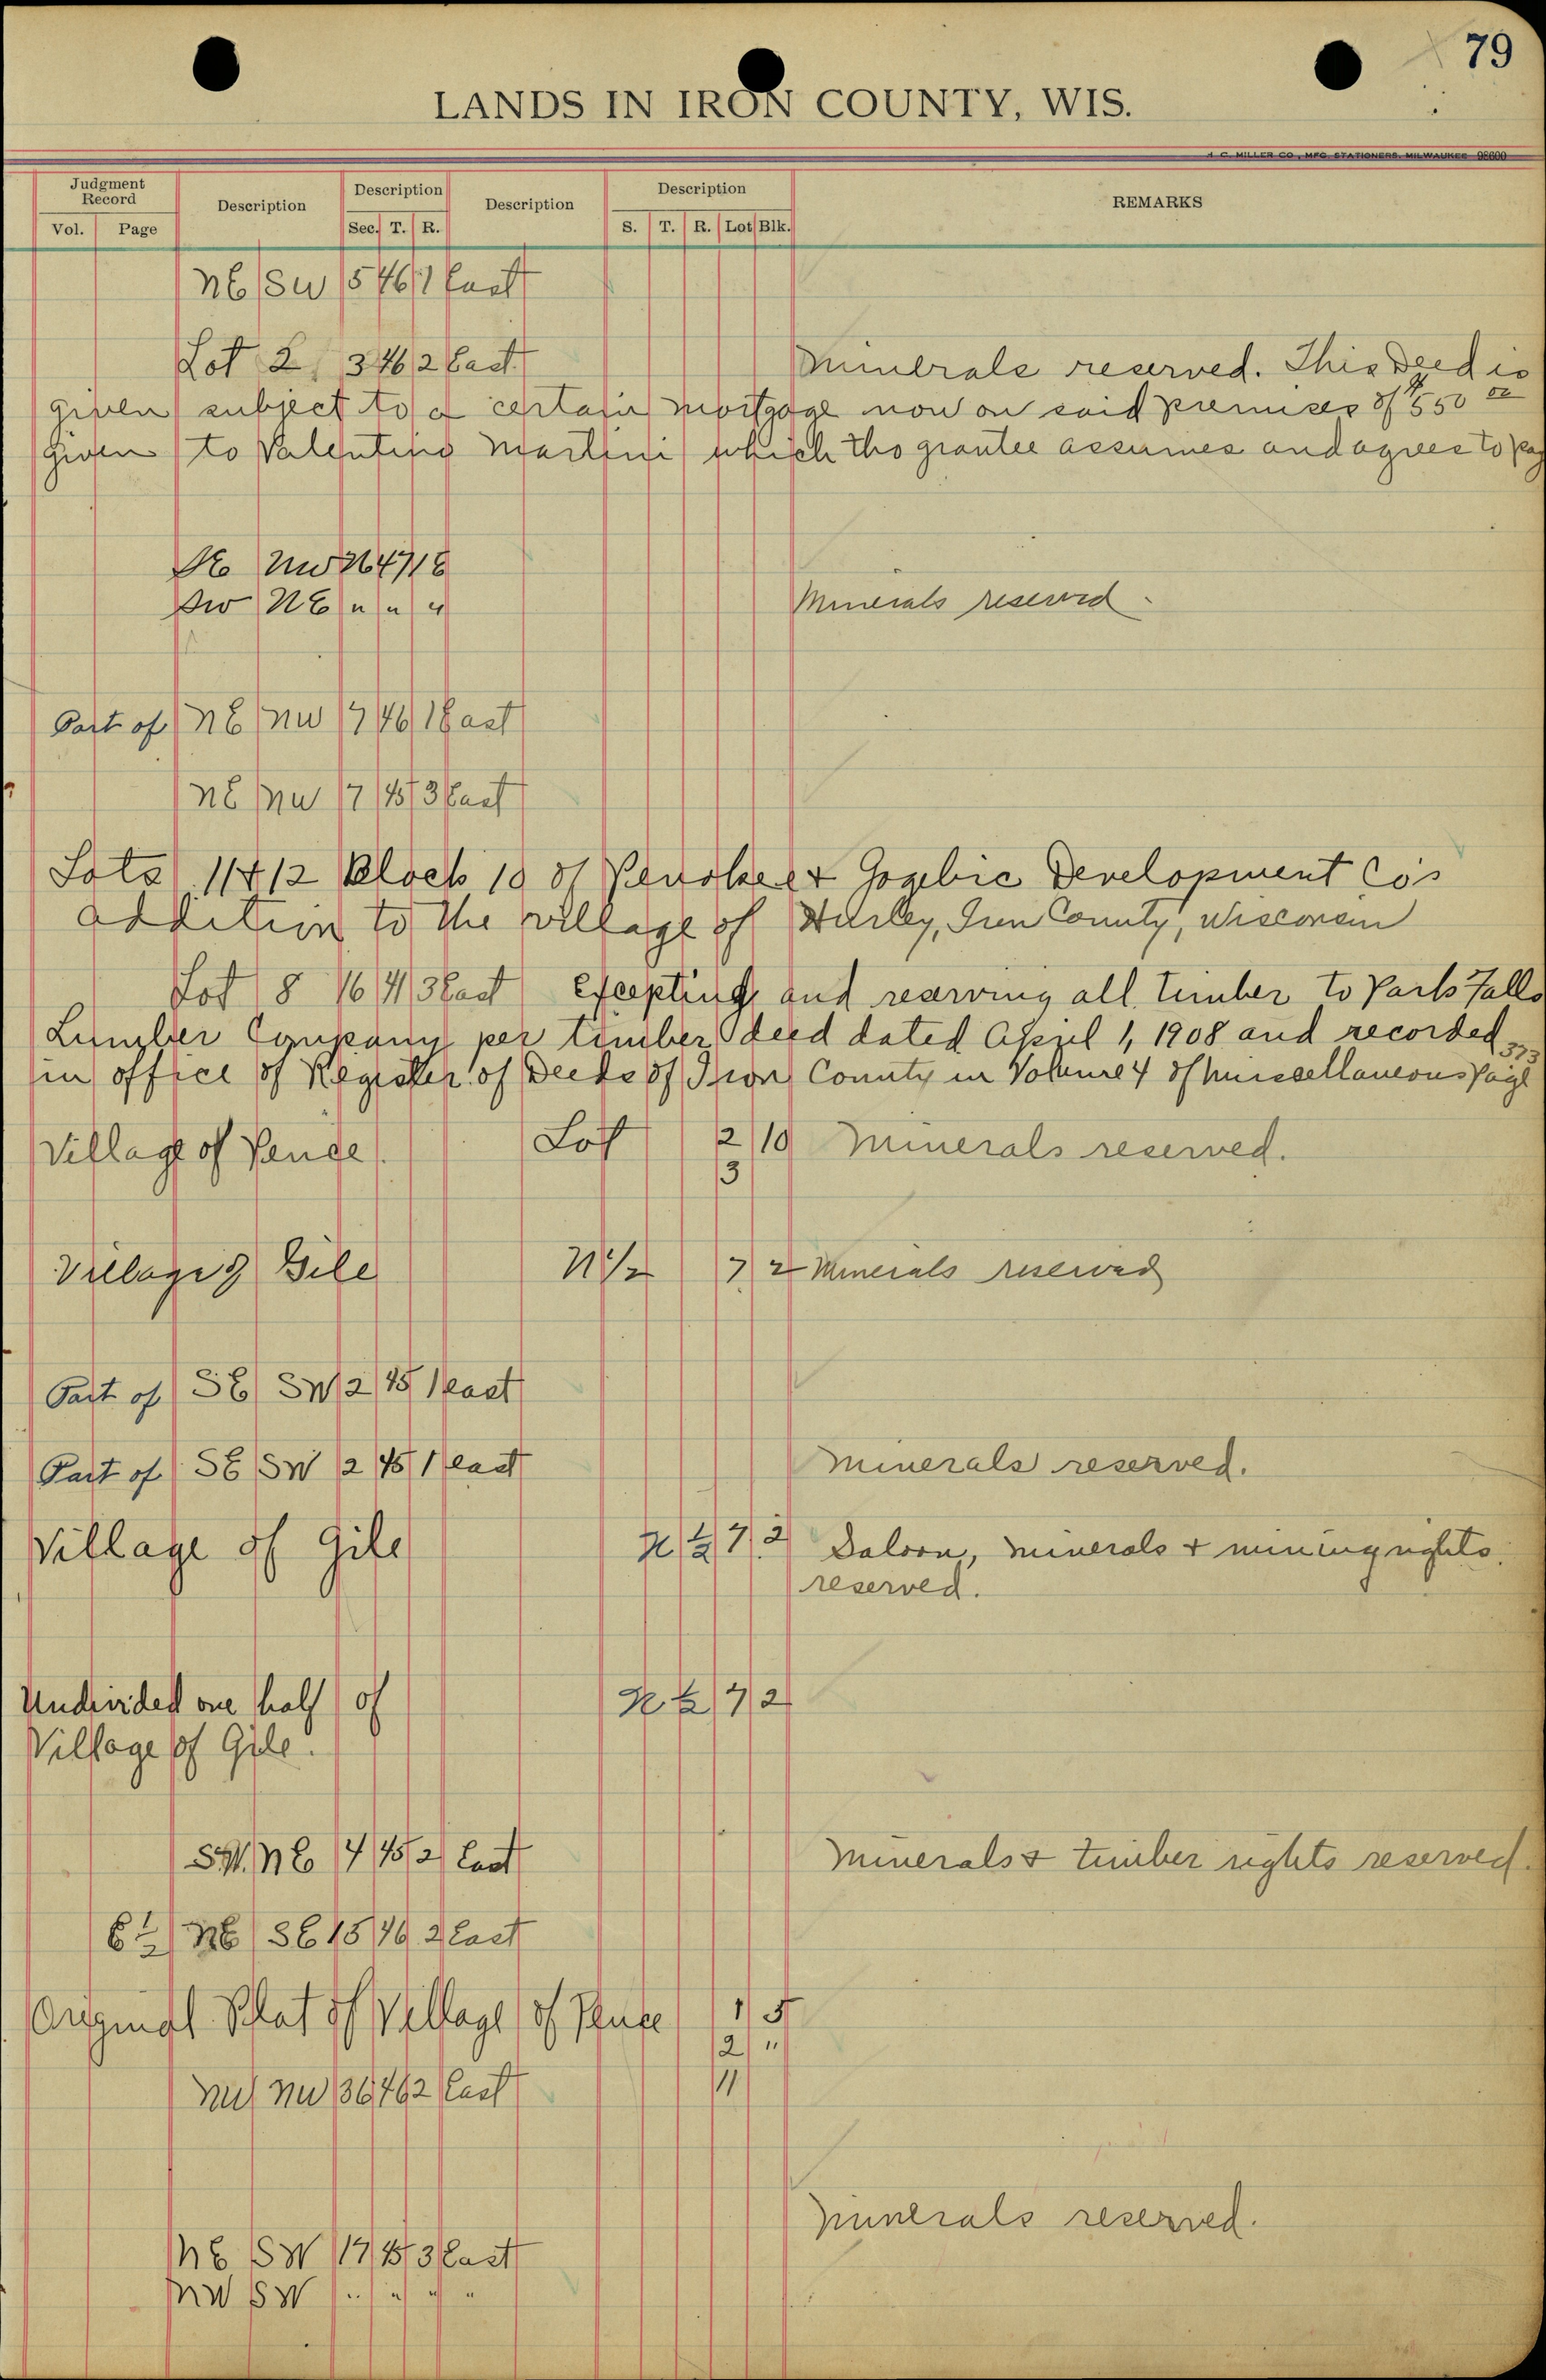 79
LANDS IN IRON COUNTY, WIS.
H. C. MILLER CO., MFG. STATIONERS, MILWAUKEE 98600
Judgment Record Description Description Description Description REMARKS
Vol. Page Sec. T. R. S. T. R. Lot Blk.
NE SW 5 46 1 East
Lot 2, 3 46 2 East. Minerals reserved. This Deed is
given subject to a certain mortgage now on said premises of $550 00
given to Valentino Martini which the grantee assumes and agrees to pay
NW 26 47 1 E
SW NE " " " Minerals reserved.
Part of NE NW 17 46 1 East
NE NW 17 45 3 East
Lots 11 & 12 Block 10 of Penokee & Gogebic Development Co's
addition to the village of Hurley, Iron County, Wisconsin
Lot 8 16 41 3 East Excepting and reserving all timber to Park Falls
Lumber Company per timber deed dated April 1, 1908 and recorded
in office of Register of Deeds of Iron County in Volume 4 of Miscellaneous Page 373
Village of Pence Lot 2 10 Minerals reserved.
3
Village of Gile N 1/2 7 2 Minerals reserved
Part of SE SW 2 45 1 East
Part of SE SW 2 45 1 East Minerals reserved.
Village of Gile N 1/2 7 2 Saloon, minerals & mining rights
reserved.
Undivided one half of N 1/2 7 2
Village of Gile.
SW. NE 14 45 2 East Minerals & timber rights reserved.
E 1/2 NE SE 15 46 2 East
Original Plat of Village of Pence 1 5
2 "
11
NW NW 36 46 2 East
Minerals reserved.
NE SW 17 45 3 East
NW SW " " " "